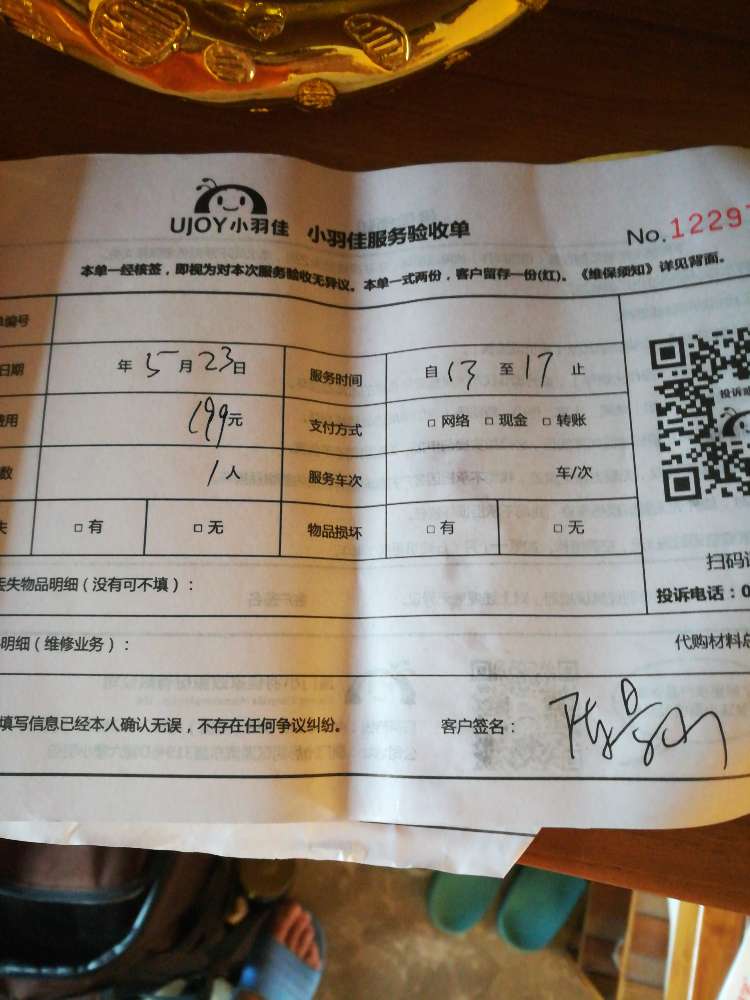 UJOY小羽佳 小羽佳服务验收单 No.12297
本单一经核签，即视为对本次服务验收无异议。本单一式两份，客户留存一份(红)。《维保须知》详见背面。
单编号
日期 年 5月 23日 服务时间 自 13 至 17 止
费用 199元 支付方式 □ 网络 □ 现金 □ 转账
数 1人 服务车次 车/次
失 □ 有 □ 无 物品损坏 □ 有 □ 无
投诉
扫码
投诉电话：0
丢失物品明细（没有可不填）：
明细（维修业务）： 代购材料总
填写信息已经本人确认无误，不存在任何争议纠纷。 客户签名：